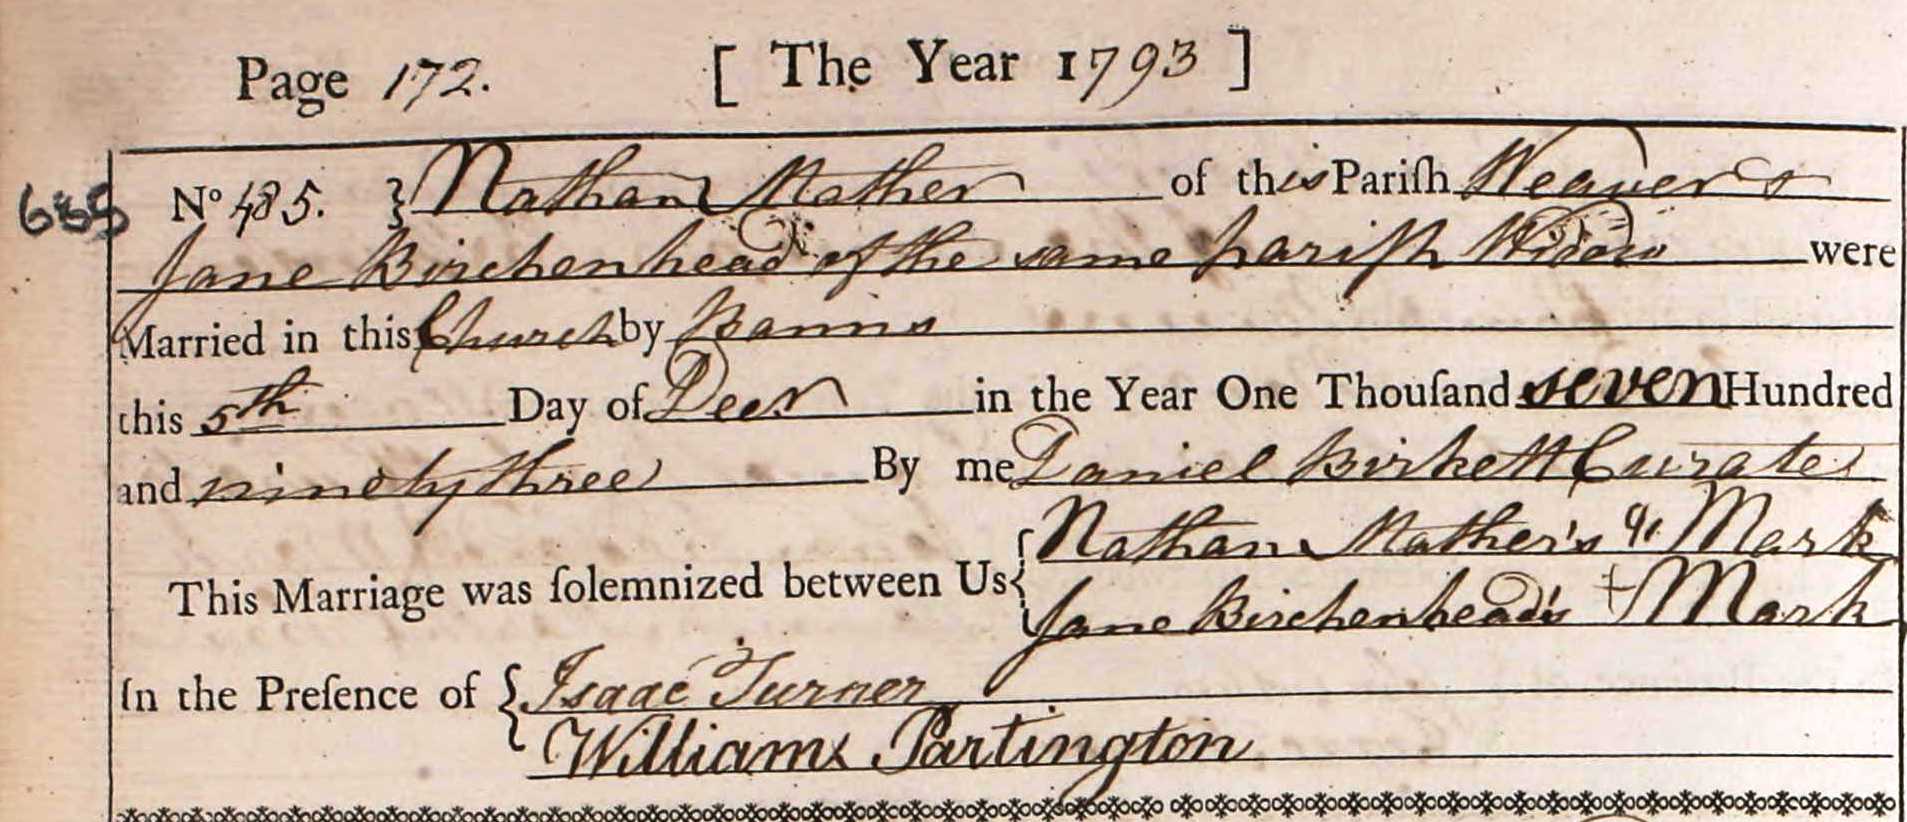 Page 172. [ The Year 1793 ]
685 No 485. } Nathan Mather of this Pariſh Weaver &
Jane Birchenhead of the same pariſh Widow were
Married in this Church by Banns
this 5th Day of Decr in the Year One Thouſand seven Hundred
and ninety three By me Daniel Birkett Curate
This Marriage was ſolemnized between Us { Nathan Mather's Mark
Jane Birchenhead's + Mark
In the Preſence of { Isaac Turner
William Partington